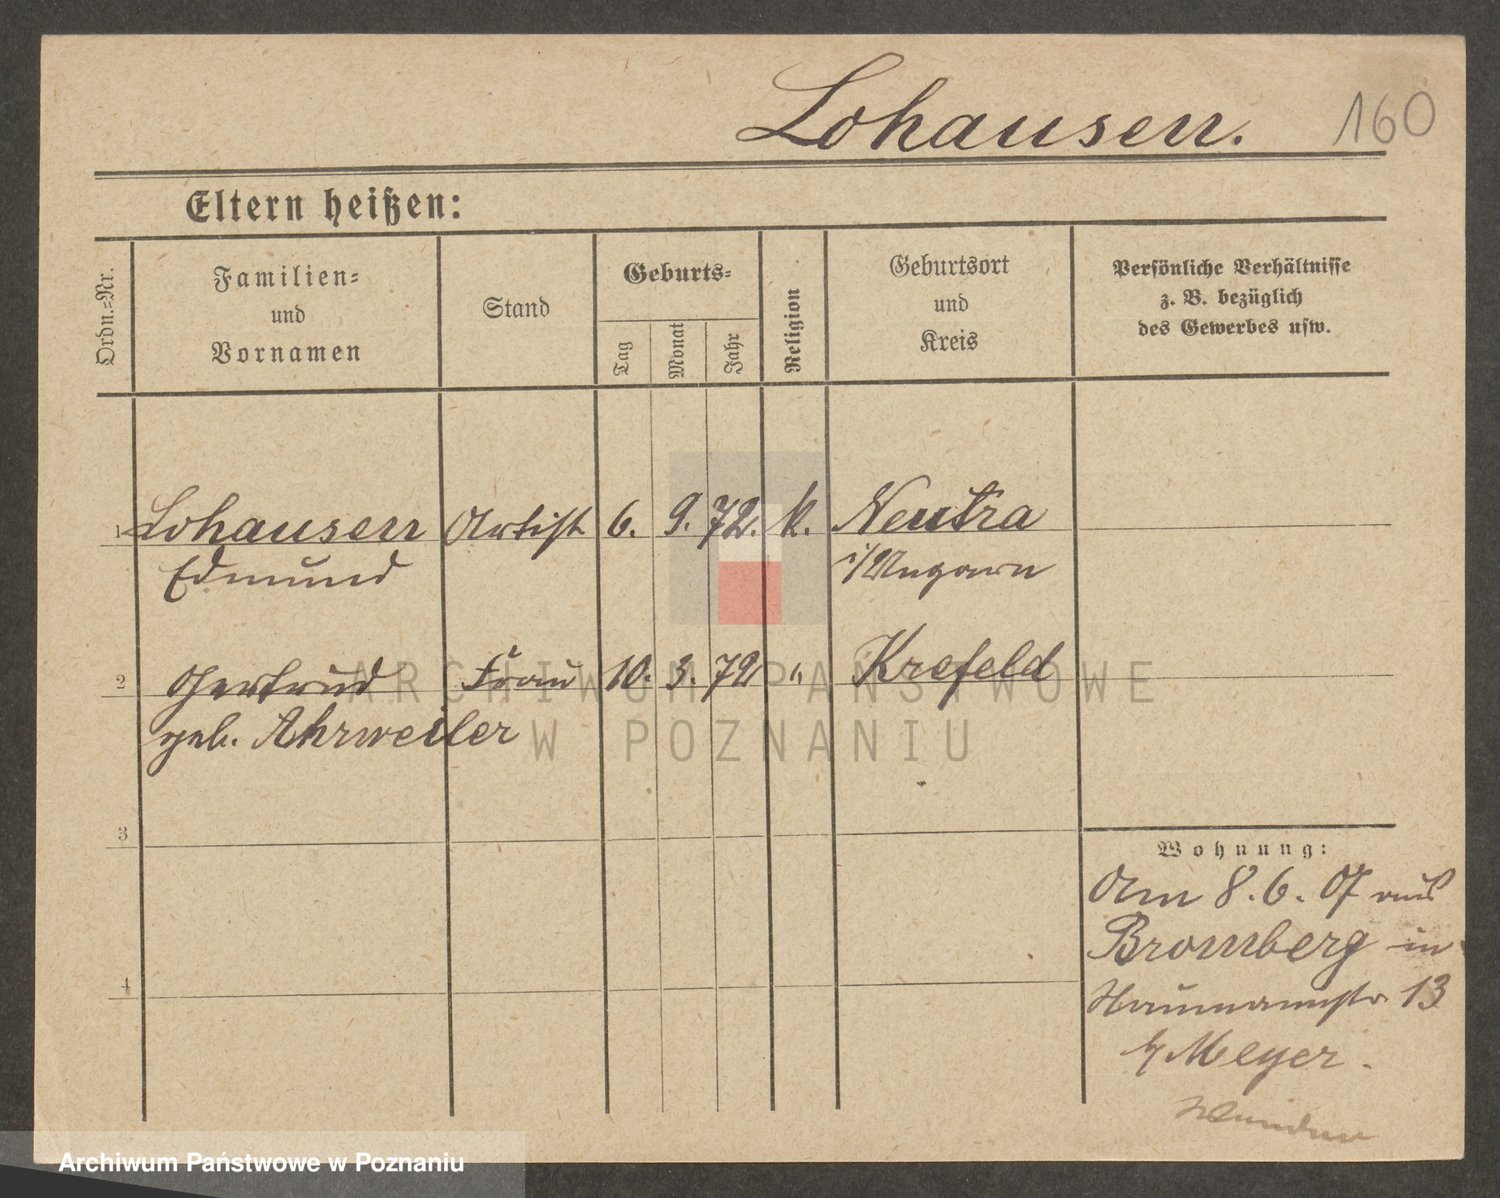 Lohausen. 160
Eltern heißen:
Ordn.-Nr.
Familien-
und
Vornamen
Stand
Geburts-
Tag
Monat
Jahr
Religion
Geburtsort
und
Kreis
Persönliche Verhältnisse
z. B. bezüglich
des Gewerbes usw.
1 Lohausen Artist 6. 9. 72. k. Neutra
Edmund i/Ungarn
2 Gertrud Frau 10. 3. 72 " Krefeld
geb. Ahrweiler
ARCHIWUM PAŃSTWOWE
W POZNANIU
3
Wohnung:
Am 8. 6. 07 aus
Bromberg in
Naumannstr. 13
b/ Meyer.
4
Archiwum Państwowe w Poznaniu